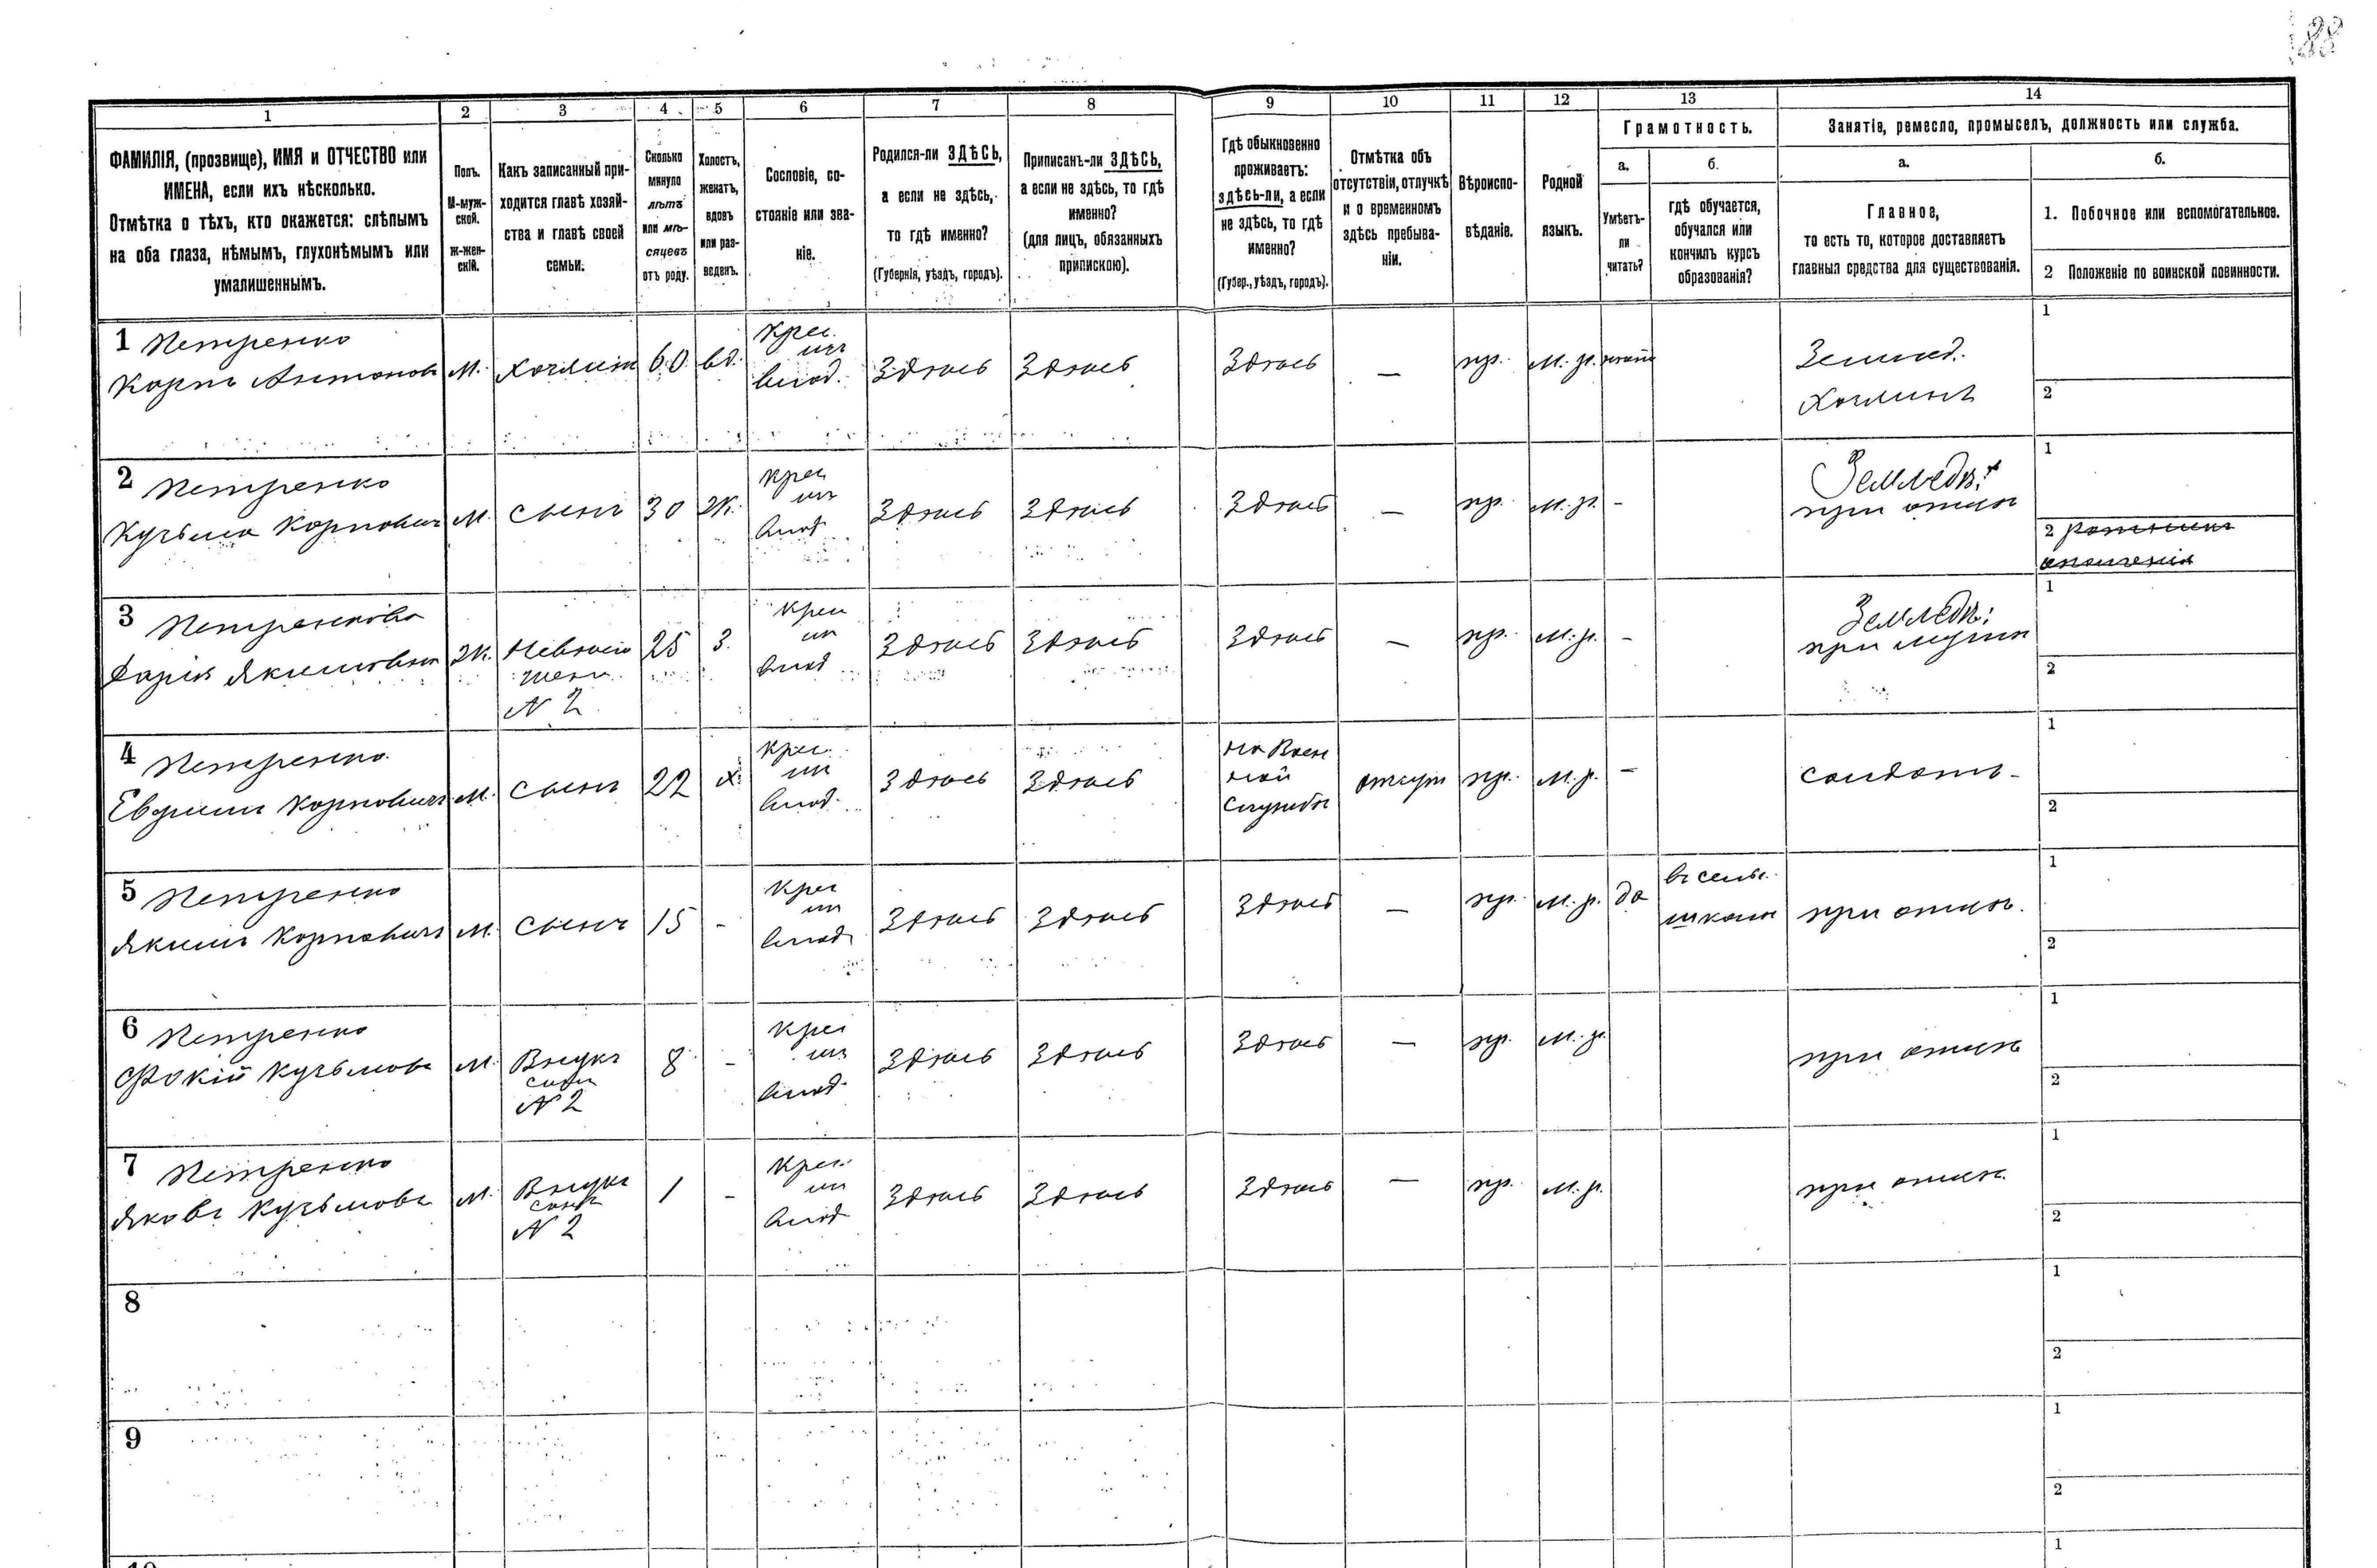 88
1
2
3
4
5
6
7
8
9
10
11
12
13
14
ФАМИЛІЯ, (прозвище), ИМЯ и ОТЧЕСТВО или
ИМЕНА, если ихъ нѣсколько.
Отмѣтка о тѣхъ, кто окажется: слѣпымъ
на оба глаза, нѣмымъ, глухонѣмымъ или
умалишеннымъ.
Полъ.
М-муж-
ской.
ж-жен-
скій.
Какъ записанный при-
ходится главѣ хозяй-
ства и главѣ своей
семьи.
Сколько
минуло
лѣтъ
или мѣ-
сяцевъ
отъ роду.
Холостъ,
женатъ,
вдовъ
или раз-
веденъ.
Сословіе, со-
стояніе или зва-
ніе.
Родился-ли ЗДѢСЬ,
а если не здѣсь,
то гдѣ именно?
(Губернія, уѣздъ, городъ).
Приписанъ-ли ЗДѢСЬ,
а если не здѣсь, то гдѣ
именно?
(для лицъ, обязанныхъ
припискою).
Гдѣ обыкновенно
проживаетъ:
здѣсь-ли, а если
не здѣсь, то гдѣ
именно?
(Губер., уѣздъ, городъ).
Отмѣтка объ
отсутствіи, отлучкѣ
и о временномъ
здѣсь пребыва-
ніи.
Вѣроиспо-
вѣданіе.
Родной
языкъ.
Грамотность.
а.
Умѣетъ-
ли
читать?
б.
гдѣ обучается,
обучался или
кончилъ курсъ
образованія?
Занятіе, ремесло, промыселъ, должность или служба.
а.
Главное,
то есть то, которое доставляетъ
главныя средства для существованія.
б.
1. Побочное или вспомогательное.
2 Положеніе по воинской повинности.
1 Петренко
Корпъ Антоновъ
М.
Хозяинъ
60
вд.
Крес.
изъ
влад.
Здѣсь
Здѣсь
Здѣсь
—
пр.
М. р.
Землед.
Хозяинъ
1
2
2 Петренко
Кузьма Корповичъ
М.
Сынъ
30
Ж.
Крес
изъ
влад
Здѣсь
Здѣсь
Здѣсь
—
пр.
М. р.
-
Земледѣл:
при отцѣ
1
2 ратникъ
ополченія
3 Петренкова
Дарія Якимовна
Ж.
Невѣст
жена
N 2
25
З.
Крес
из
влад
Здѣсь
Здѣсь
Здѣсь
—
пр.
М. р.
-
Земледѣл:
при мужѣ
1
2
4 Петренко
Евфимъ Корповичъ
М.
Сынъ
22
Х.
Крес.
из
влад.
Здѣсь
Здѣсь
на Воен
ной
Службѣ
отсут
пр.
М. р.
-
солдатъ -
1
2
5 Петренко
Якимъ Корповичъ
М.
Сынъ
15
-
Крес
из
влад
Здѣсь
Здѣсь
Здѣсь
—
пр.
М. р.
да
въ сельс.
школѣ
при отцѣ.
1
2
6 Петренко
Фокій Кузьмовъ
М.
Внукъ
сынъ
N 2
8
-
Крес
изъ
влад.
Здѣсь
Здѣсь
Здѣсь
—
пр.
М. р.
при отцѣ
1
2
7 Петренко
Яковъ Кузьмовъ
М.
Внукъ
сынъ
N 2
1
-
Крес.
из
влад
Здѣсь
Здѣсь
Здѣсь
—
пр.
М. р.
при отцѣ
1
2
8
1
2
9
1
2
1